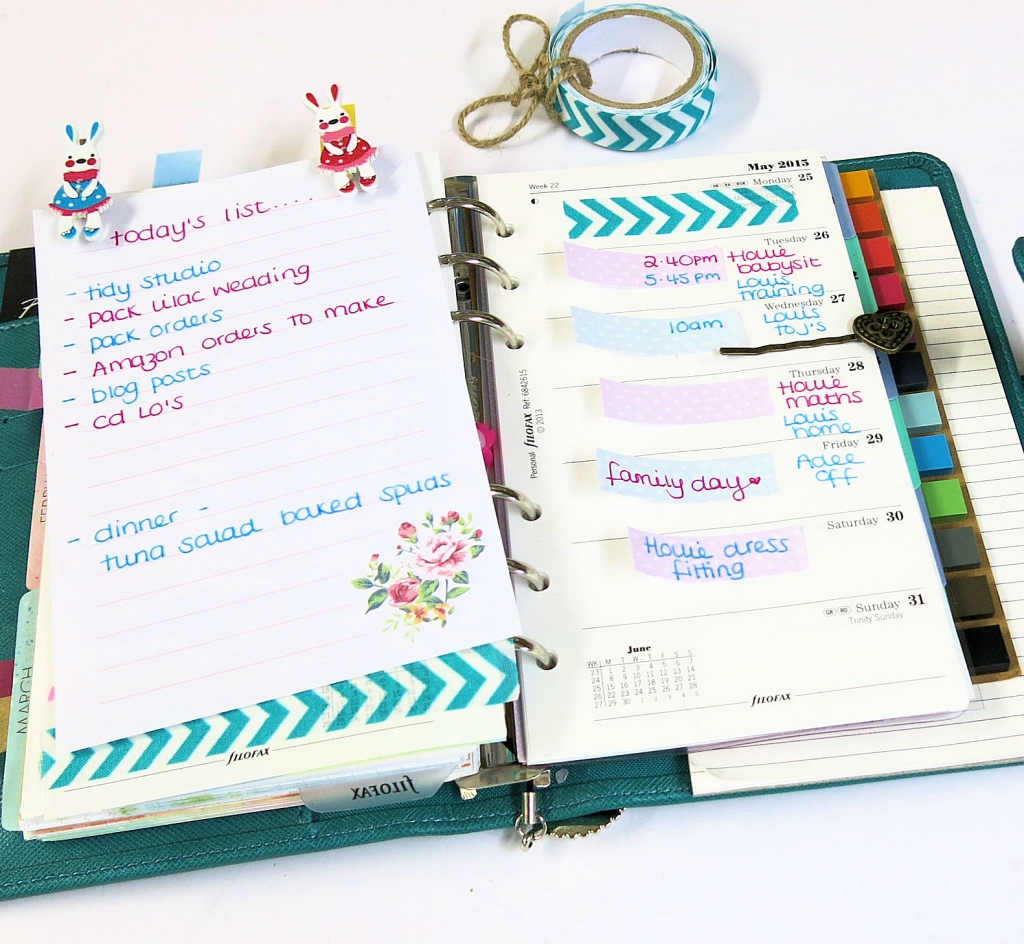 today's list.....
- tidy studio
- pack lilac wedding
- pack orders
- Amazon orders to make
- blog posts
- cd LO'S
- dinner -
tuna salad baked spuds
fILOFAX
fILOFAX
MARCH
Week 22
May 2015
Monday 25
Tuesday 26
2.40pm Hollie
babysit
5.45pm Louis
training
Wednesday 27
10am Louis
to J's
Thursday 28
Hollie
maths
Louis
home
Friday 29
family day
Adee
off
Saturday 30
Hollie dress
fitting
Sunday 31
Trinity Sunday
Personal fILOFAX Ref. 6842615
© 2013
June
WK M T W T F S S
23 1 2 3 4 5 6 7
24 8 9 10 11 12 13 14
25 15 16 17 18 19 20 21
26 22 23 24 25 26 27 28
27 29 30 1 2 3 4 5
fILOFAX